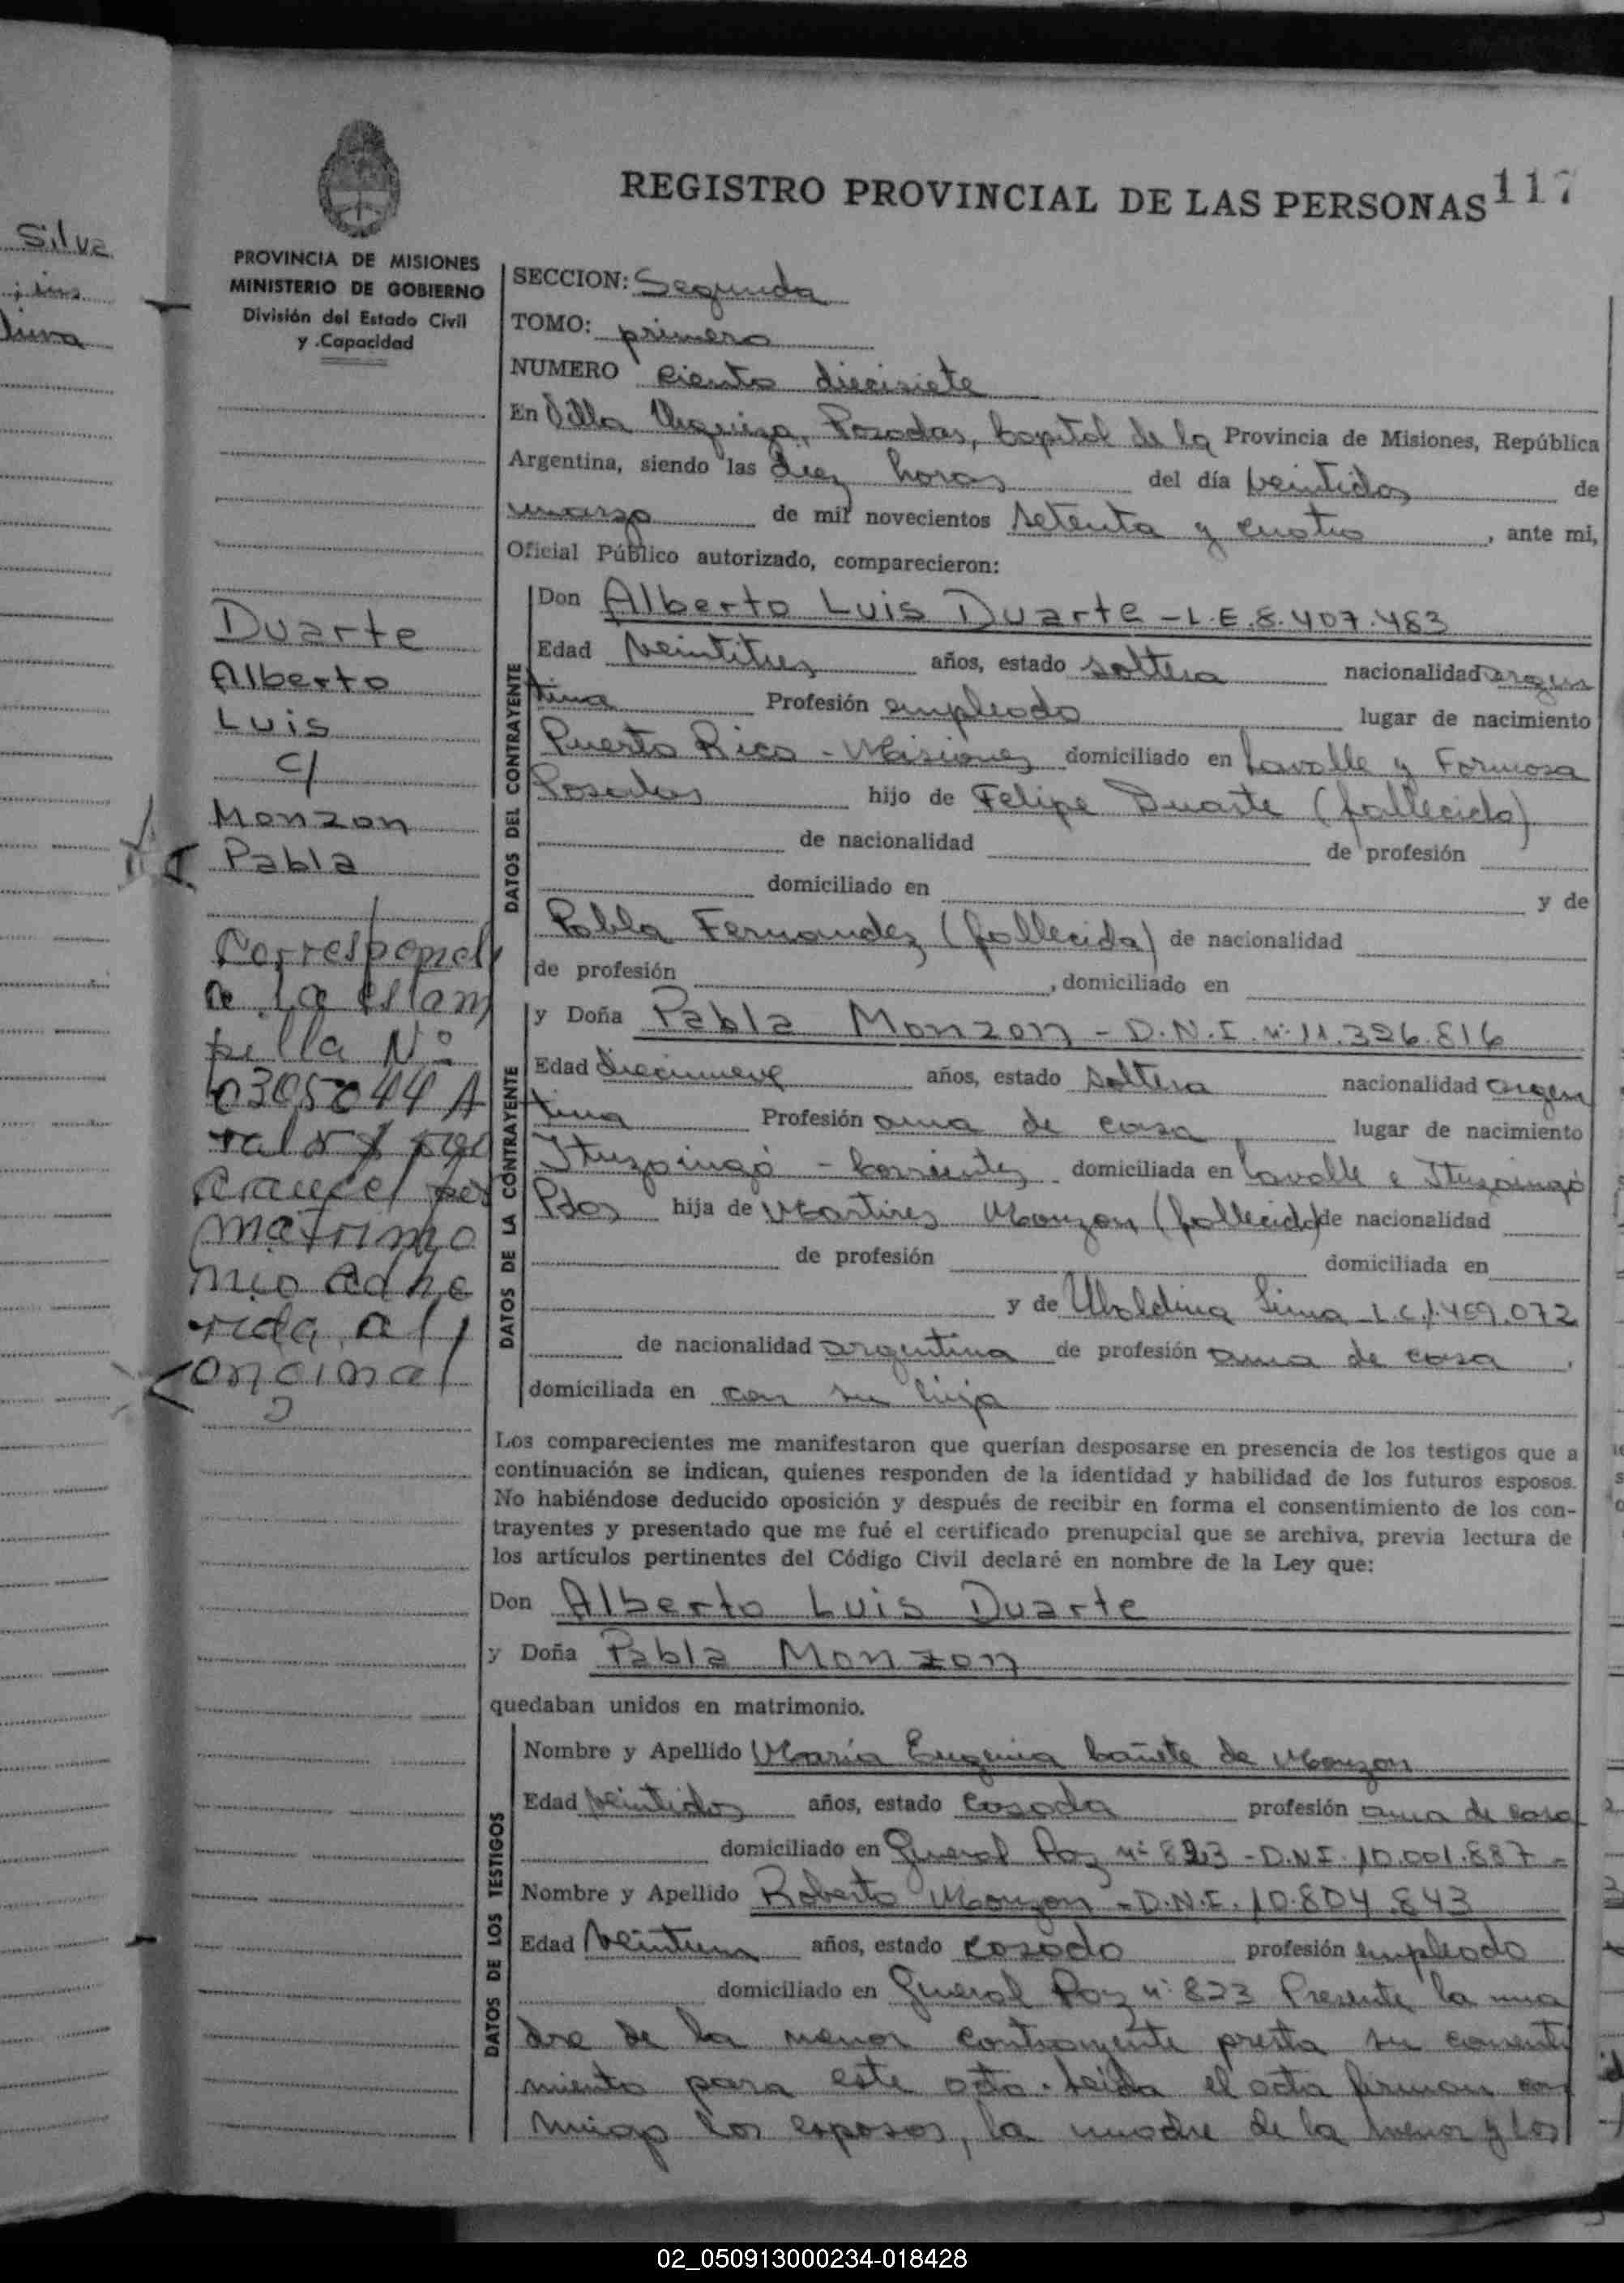 Silva
REGISTRO PROVINCIAL DE LAS PERSONAS 117
PROVINCIA DE MISIONES
MINISTERIO DE GOBIERNO
División del Estado Civil
y Capacidad
Duarte
Alberto
Luis
c/
Monzon
Pabla
Correspond
a la estam
pilla Nº
0305044 A
valor $
arancel por
matrimo
nio adhe
rida al
original
SECCION: Segunda
TOMO: primero
NUMERO ciento diecisiete
En Villa Urquiza, Posadas, Capital de la Provincia de Misiones, República
Argentina, siendo las diez horas del día veintidos de
marzo de mil novecientos setenta y cuatro, ante mi,
Oficial Público autorizado, comparecieron:
DATOS DEL CONTRAYENTE
Don Alberto Luis Duarte - L.E. 8.407.483
Edad veintitres años, estado soltero nacionalidad argen
tina Profesión empleado lugar de nacimiento
Puerto Rico - Misiones domiciliado en Lavalle y Formosa
Posadas hijo de Felipe Duarte (fallecido)
de nacionalidad de profesión
domiciliado en y de
Pabla Fernandez (fallecida) de nacionalidad
de profesión , domiciliado en
DATOS DE LA CONTRAYENTE
y Doña Pabla Monzon - D.N.I. nº 11.326.816
Edad diecinueve años, estado soltera nacionalidad argen
tina Profesión ama de casa lugar de nacimiento
Ituzaingó - Corrientes domiciliada en Lavalle e Ituzaingó
Pdas hija de Martires Monzon (fallecido) de nacionalidad
de profesión domiciliada en
y de Ubaldina Lima L.C. 1.409.072
de nacionalidad argentina de profesión ama de casa,
domiciliada en con su hija
Los comparecientes me manifestaron que querían desposarse en presencia de los testigos que a
continuación se indican, quienes responden de la identidad y habilidad de los futuros esposos.
No habiéndose deducido oposición y después de recibir en forma el consentimiento de los con-
trayentes y presentado que me fué el certificado prenupcial que se archiva, previa lectura de
los artículos pertinentes del Código Civil declaré en nombre de la Ley que:
Don Alberto Luis Duarte
y Doña Pabla Monzon
quedaban unidos en matrimonio.
DATOS DE LOS TESTIGOS
Nombre y Apellido María Eugenia Cañete de Monzon
Edad veintidos años, estado casada profesión ama de casa
domiciliado en General Paz nº 823 - D.N.I. 10.001.887 -
Nombre y Apellido Roberto Monzon - D.N.I. 10.804.843
Edad veintiun años, estado casado profesión empleado
domiciliado en General Paz nº 823 Presente la ma
dre de la menor contrayente presta su consenti
miento para este acto. Leída el acta firman con
migo los esposos, la madre de la menor y los
02_050913000234-018428